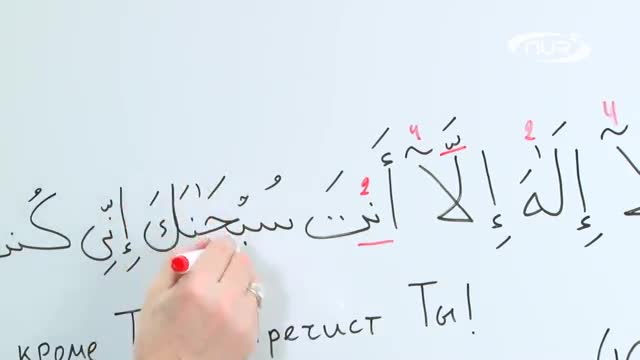 NUR
4 2 4 2
لَآ إِلَٰهَ إِلَّآ أَنتَ سُبْحَٰنَكَ إِنِّي كُنت
кроме Т речист Ты!